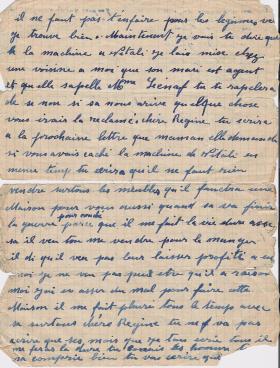 il ne faut pas t'enfaire pour les legumes, ca
je trouve bien. Maintenant je vais te dire que
la machine a Natali je lais mise chez
une voisine a moi que son mari est agent
et quelle sapelle Mme tu te rapelera
de se nom si sa nous arive quelque chose
vous irais la reclamé, chere Regine, tu ecrira
a la prochaine lettre que maman elle demande
si vous avais caché la machine de Natali en
meme temp tu dira qu'il ne faut rien
vendre surtous les meubles qu'il faudra une
Maison pour vous aussi quand sa va finir
la guerre parce que il me fait la vie dure
sa il veu tou me vendre pour le manger
il di qu'il veu pas leur laisser profité a
moi je ne veu pas peut etre qu'il a raison
Moi j'ai eu asser du mal pour faire cette
Maison il me fait pleuré tous le temp avec
sa surtous chere Regine tu ne va pas
ecrire que ses moi que je tous ecrie tous il
me feras la dure tu connais les hommes
sa comprie bien tu vas ecrire que